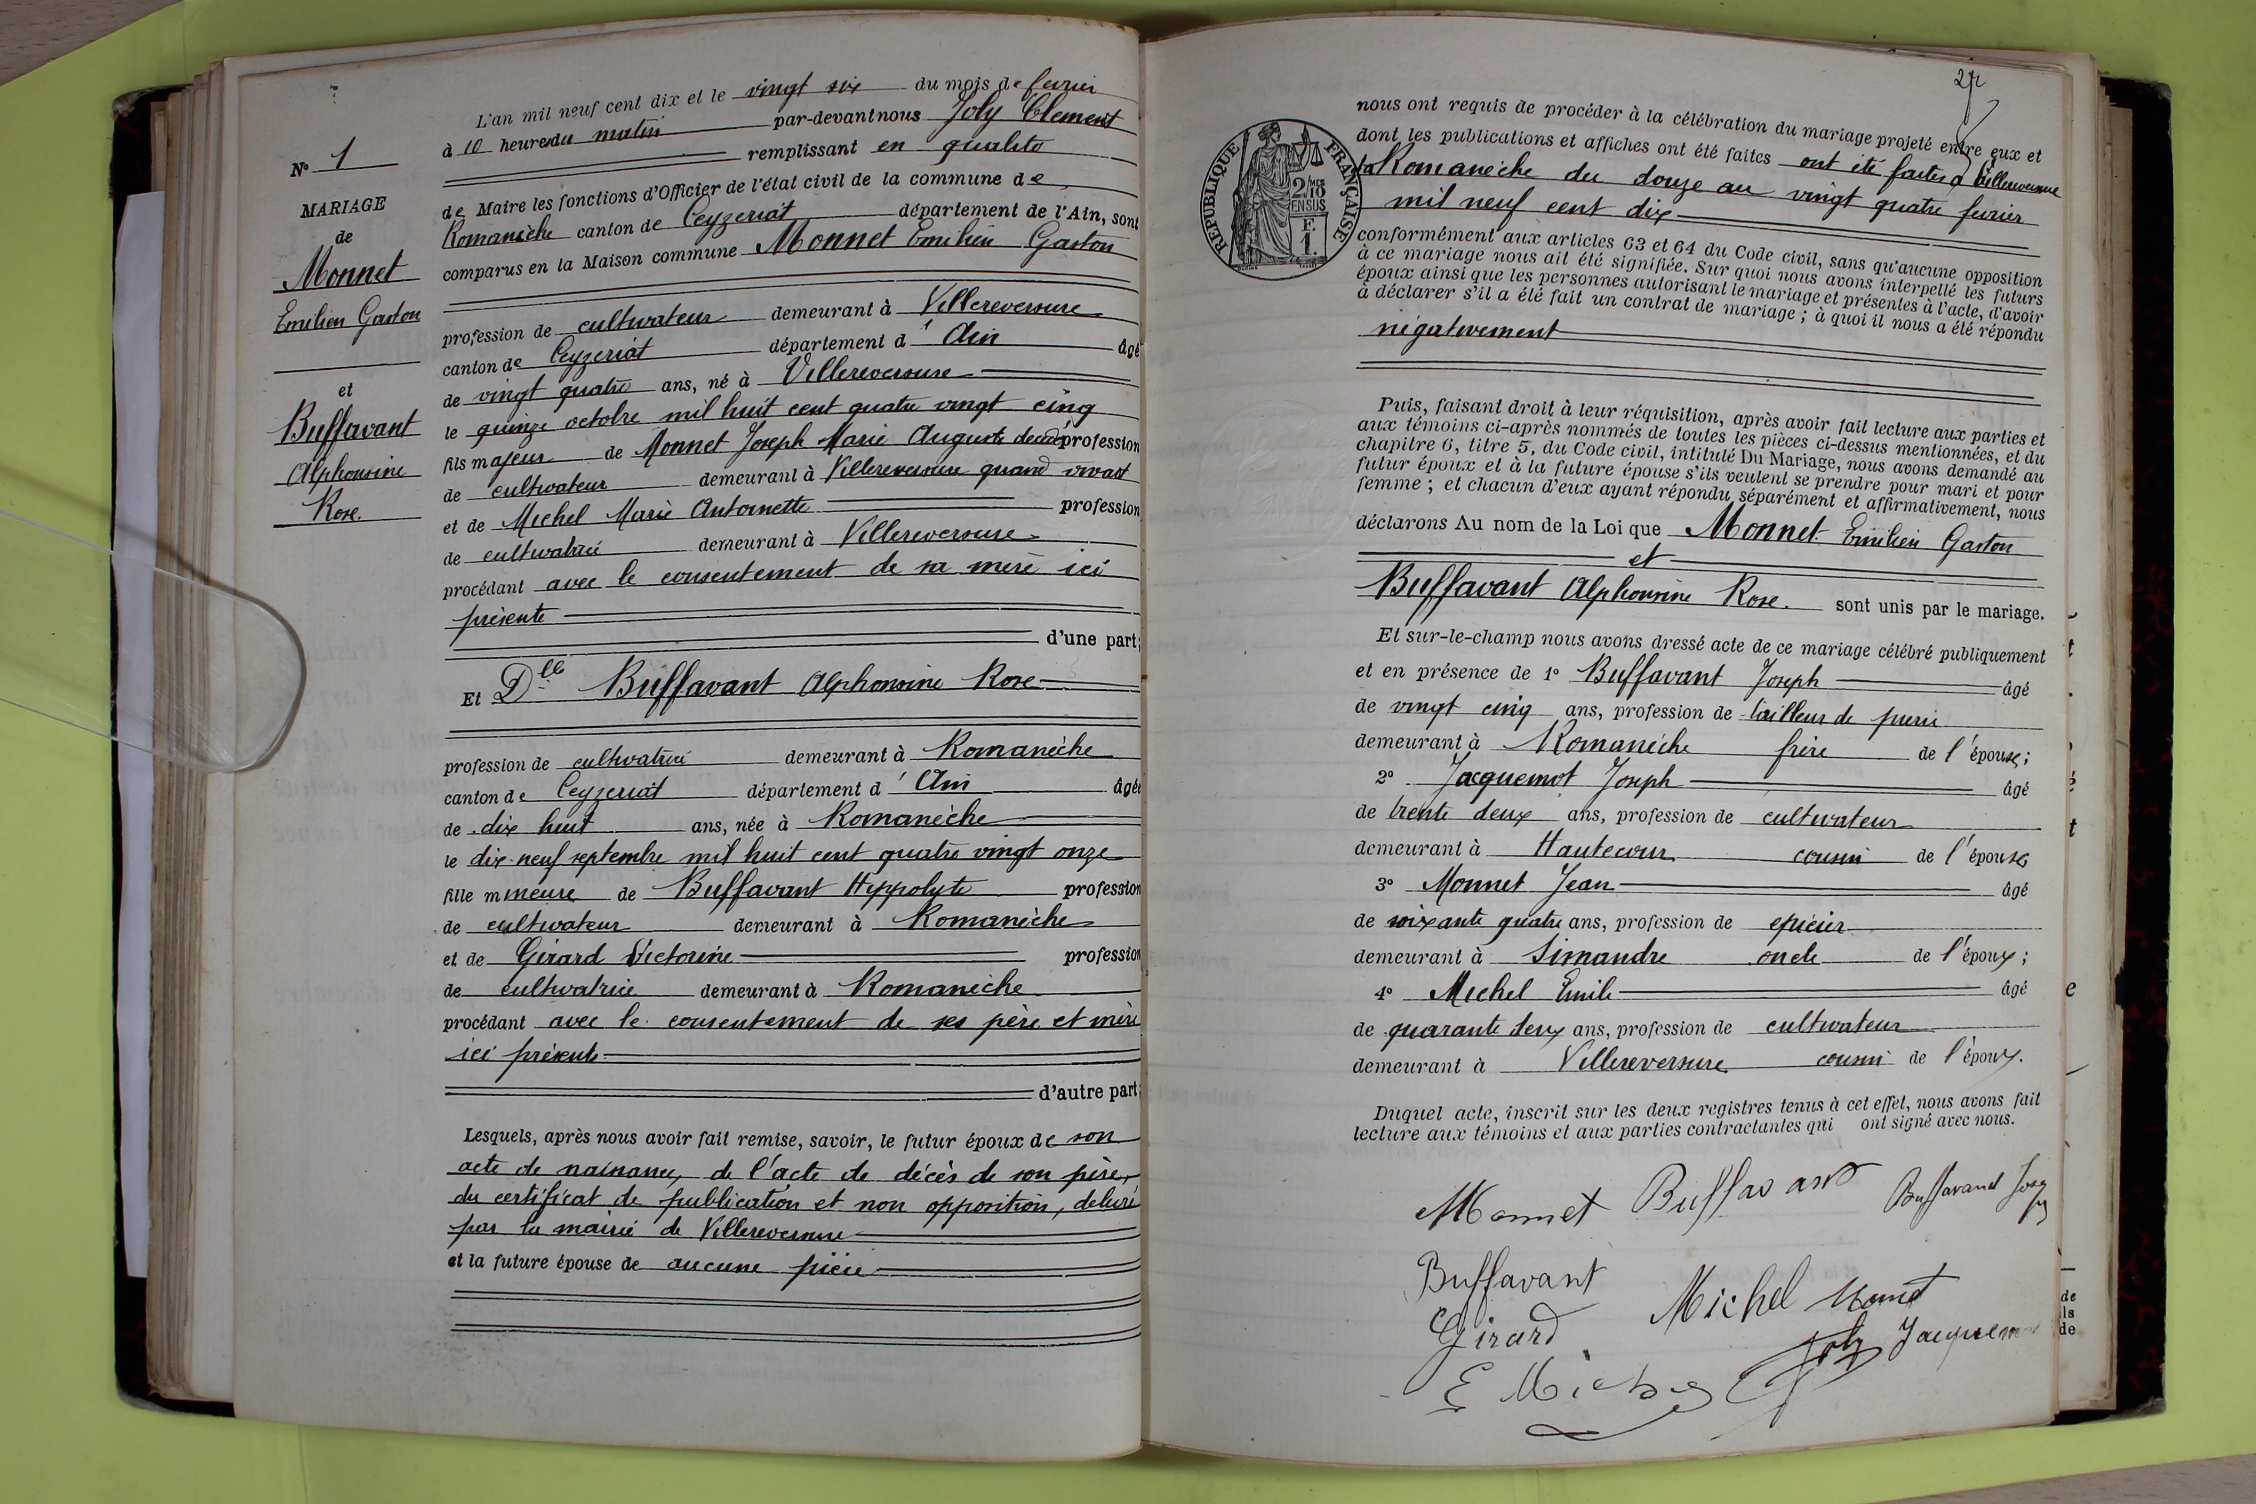 L'an mil neuf cent dix et le vingt six du mois de fevrier
à 10 heures du matin par-devant nous Joly Clement
remplissant en qualité
de Maire les fonctions d'Officier de l'état civil de la commune de
Romanèche canton de Ceyzeriat département de l'Ain, sont
comparus en la Maison commune Monnet Emilien Gaston
profession de cultivateur demeurant à Villereversure
canton de Ceyzeriat département d'Ain âgé
de vingt quatre ans, né à Villereversure
le quinze octobre mil huit cent quatre vingt cinq
fils majeur de Monnet Joseph Marie Auguste décédé profession
de cultivateur demeurant à Villereversure quand vivait
et de Michel Marie Antoinette profession
de cultivatrice demeurant à Villereversure
procédant avec le consentement de sa mère ici
présente
d'une part;
Et Dlle Buffavant Alphonsine Rose
profession de cultivatrice demeurant à Romanèche
canton de Ceyzeriat département d'Ain âgée
de dix huit ans, née à Romanèche
le dix-neuf septembre mil huit cent quatre vingt onze
fille mineure de Buffavant Hippolyte profession
de cultivateur demeurant à Romanèche
et de Girard Victorine profession
de cultivatrice demeurant à Romanèche
procédant avec le consentement de ses père et mère
ici présents
d'autre part;
Lesquels, après nous avoir fait remise, savoir, le futur époux de son
acte de naissance, de l'acte de décès de son père,
du certificat de publication et non opposition, délivré
par la mairie de Villereversure
et la future épouse de aucune pièce
N° 1
MARIAGE
de
Monnet
Emilien Gaston
et
Buffavant
Alphonsine
Rose.
27
RÉPUBLIQUE FRANÇAISE
2/10 MES
EN SUS
F.
1.
nous ont requis de procéder à la célébration du mariage projeté entre eux et
dont les publications et affiches ont été faites ont été faites à Villereversure
Romanèche du douze au vingt quatre fevrier
mil neuf cent dix
conformément aux articles 63 et 64 du Code civil, sans qu'aucune opposition
à ce mariage nous ait été signifiée. Sur quoi nous avons interpellé les futurs
époux ainsi que les personnes autorisant le mariage et présentes à l'acte, d'avoir
à déclarer s'il a été fait un contrat de mariage; à quoi il nous a été répondu
négativement
Puis, faisant droit à leur réquisition, après avoir fait lecture aux parties et
aux témoins ci-après nommés de toutes les pièces ci-dessus mentionnées, et du
chapitre 6, titre 5, du Code civil, intitulé Du Mariage, nous avons demandé au
futur époux et à la future épouse s'ils veulent se prendre pour mari et pour
femme; et chacun d'eux ayant répondu séparément et affirmativement, nous
déclarons Au nom de la Loi que Monnet Emilien Gaston
et
Buffavant Alphonsine Rose. sont unis par le mariage.
Et sur-le-champ nous avons dressé acte de ce mariage célébré publiquement
et en présence de 1° Buffavant Joseph âgé
de vingt cinq ans, profession de tailleur de pierre
demeurant à Romanèche frère de l'épouse;
2° Jacquemot Joseph âgé
de trente deux ans, profession de cultivateur
demeurant à Hautecour cousin de l'épouse
3° Monnet Jean âgé
de soixante quatre ans, profession de epicier
demeurant à Simandre oncle de l'époux;
4° Michel Emile âgé
de quarante deux ans, profession de cultivateur
demeurant à Villereversure cousin de l'époux.
Duquel acte, inscrit sur les deux registres tenus à cet effet, nous avons fait
lecture aux témoins et aux parties contractantes qui ont signé avec nous.
Monnet Buffavant Buffavand Joseph
Buffavant Michel Monnet
Girard Joly Jacquemot
E Michel